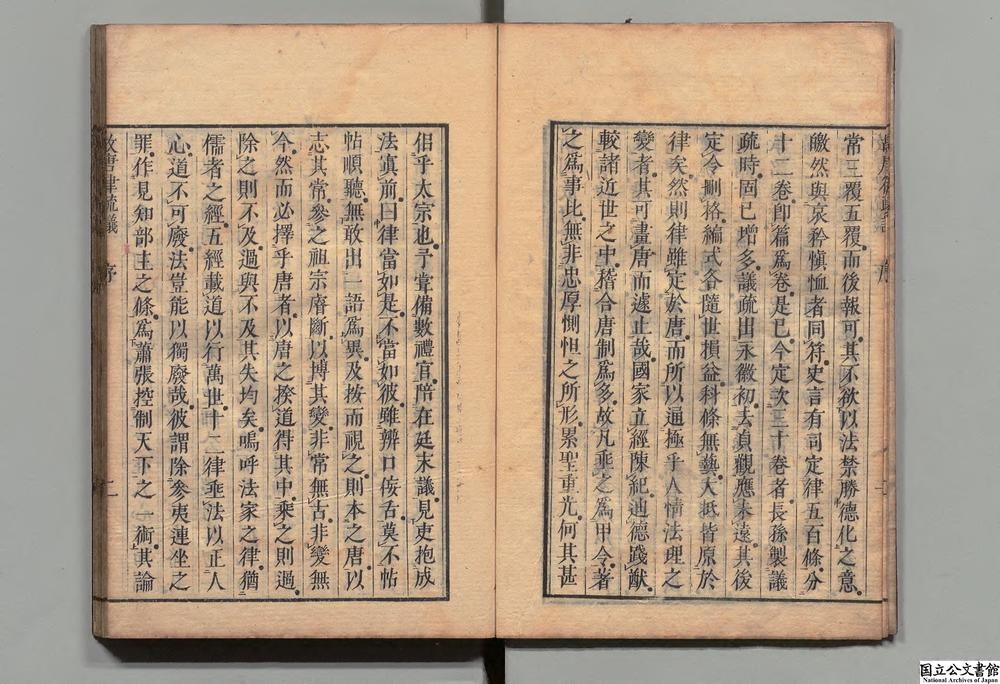 常三覆五覆而後報可其不欲以法禁勝德化之意
皦然與哀矜愼恤者同符史言有司定律五百條分
十二卷卽篇爲卷是已今定次三十卷者長孫製議
疏時固已增多議疏出永徽初去貞觀應未遠其後
定令刪格編式各隨世損益科條無藝大抵皆原於
律矣然則律雖定於唐而所以通極乎人情法理之
變者其可畫唐而遽止哉國家立經陳紀迪德踐猷
較諸近世之中稽合唐制爲多故凡乖之爲甲令著
之爲事比無非忠厚惻怛之所形累聖重光何其甚
侶乎太宗也予嘗備數禮官陪在廷末議見吏抱成
法寘前曰律當如是不當如彼雖辨口佞舌莫不帖
帖順聽無敢出一語爲異及按而視之則本之唐以
志其常參之祖宗睿斷以博其變非常無古非變無
今然而必擇乎唐者以唐之揆道得其中乘之則過
除之則不及過與不及其失均矣嗚呼法家之律猶
儒者之經五經載道以行萬世十二律乖法以正人
心道不可廢法豈能以獨廢哉彼謂除參夷連坐之
罪作見知部主之條爲蕭張控制天下之一術其論
故唐律疏議
序
二
国立公文書館
National Archives of Japan